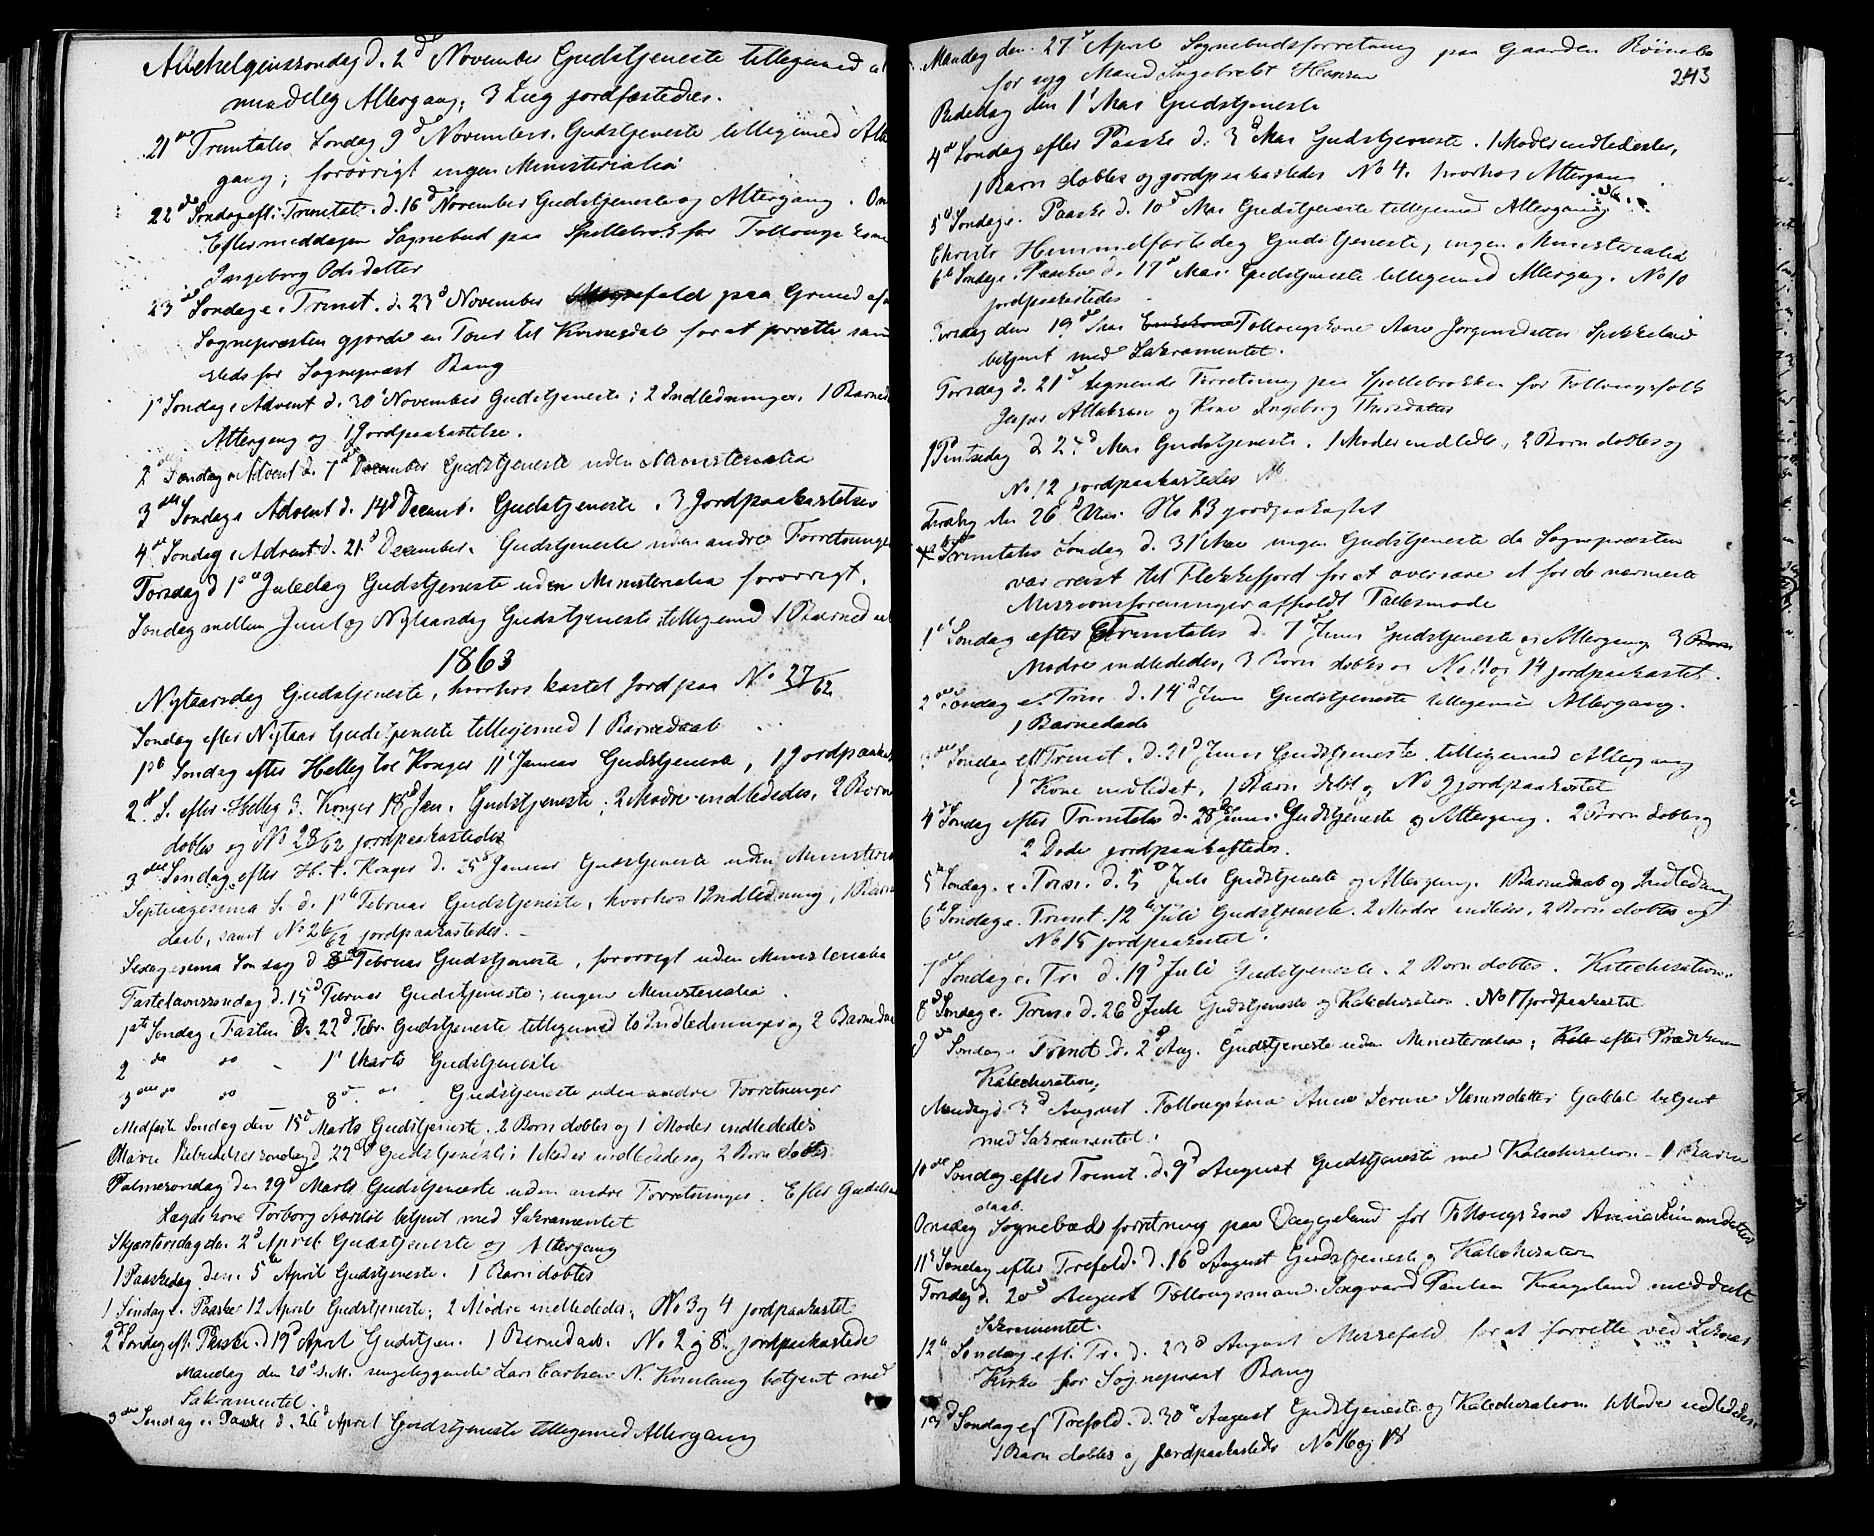 Allehelgenssøndag d. 2d November Gudstjeneste tilligemed al
mindelig Altergang; 3 Liig jordfæstedes.
21de Trinitatis Søndag 9d November. Gudstjeneste tilligemed Alter
gang; forøvrigt ingen Ministerialia
22de Søndag eft: Trinitat. d. 16d November Gudstjeneste og Altergang. Om
Eftermiddagen Sognebud paa Spillebrok for Føllougs Kone
Ingeborg Odsdatter
23de Søndag e. Trinit. d. 23d November Messefald paa Grund af at
Sognepræsten gjorde en Tour til Kvinesdal for at forrette sam
steds for Sognepræst Bang
1s Søndag i Advent d. 30t November Gudstjeneste; 2 Indledninger, 1 Barned
Altergang og 1 Jordpaakastelse.
2den Søndag i Advent d. 7d December Gudstjeneste uden Ministerialia
3die Søndag i Advent d. 14d Decemb. Gudstjeneste. 3 Jordpaakastelser
4de Søndag i Advent d. 21d December. Gudstjeneste uden andre Forretninger
Torsdag d 1ste Juledag Gudstjeneste uden Ministerialia forøvrigt.
Søndag mellem Juul og Nytaarsdag Gudstjeneste tilligemed 1 Barned
1863
Nytaarsdag Gudstjeneste, hvorhos kastet Jord paa No 27/62
Søndag efter Nytaar Gudstjeneste tilligemed 1 Barnedaab
1ste Søndag efter Hellig tre Konger 11t Januar Gudstjeneste, 1 Jordpaakast
2d S. efter Hellig 3 Konger 18d Jan. Gudstjeneste; 2 Mødre indlededes, 2 Børn
døbtes og No 28/62 jordpaakastedes
3die Søndag efter H. t. Konger d. 25d Januar Gudstjeneste uden Ministeria
Septuagesima S. d. 1ste Februar Gudstjeneste, hvorhos 1 Indledning, 1 Barne
daab, samt No 26/62 jordpaakastedes.
Sexagesima Søndag d 8de Februar Gudstjeneste, forøvrigt uden Ministerialia
Fastelavnssøndag d. 15d Februar Gudstjeneste; ingen Ministerialia.
1ste Søndag i Fasten d. 22d Febr. Gudstjeneste tilligemed Indledninger og 2 Barneda
2 do do - 1t Marts Gudstjeneste
3die do do 8d. " . Gudstjeneste uden andre Forretninger
Midfaste Søndag den 15d Marts Gudstjeneste. 2 Børn døbtes og 1 Moder indlededes
Mariæ Bebudelsessøndag d. 22d Gudstjeneste; 1 Moder indlededes og 2 Børn døbtes
Palmesøndag den 29d Marts Gudstjeneste uden andre Forretninger. Efter Gudstj
Lægdskone Torborg betjent med Sakramentet
Skjærtorsdag den 2d April Gudstjeneste og Altergang
1 Paaskedag den 5te April Gudstjeneste. 1 Barn døbtes
1 Søndag e. Paaske 12 April Gudstjeneste; 2 Mødre indlededes; No 3 og 4 jordpaakastet
2d Søndag eft. Paaske d. 19d April Gudstjen. 1 Barnedaab. No 2 og 8 jordpaakastede
Mandag den 20d d. M. sengeliggende Lars Carlsen N. Kvinlaug betjent med
Sakramentet.
3die Søndag e. Paaske d. 26d April Gudstjeneste tilligemed Altergang
243
Mandag den 27d April Sognebudsforretning paa Gaarden Røinebo
for syg Mand Ingebrekt Hansen
Bededag den 1t Mai Gudstjeneste
4de Søndag efter Paaske d. 3d Mai Gudstjeneste. 1 Moder indlededes,
1 Barn døbtes og jordpaakastedes No 4. hvorhos Altergang
5d Søndag e. Paaske d. 10d Mai Gudstjeneste tilligemed Altergang
Christi Himmelfartsdag Gudstjeneste, ingen Ministerialia
6te Søndag e. Paaske d. 17d Mai. Gudstjeneste tilligemed Altergang. No 10
jordpaakastedes.
Tirsdag den 19d Mai Føllougskone Aase Jørgensdatter Spikkeland
betjent med Sakramentet.
Torsdag d. 21d lignende Forretning paa Spillebrokken for Føllougsfolk
Jesper Atlaksen og Kone Ingeborg Thorsdatter
1ste Pintsedag d 24d Mai Gudstjeneste. 1 Moder indledt, 2 Børn døbtes og
No 12 jordpaakastedes
Tirsdag den 26d Mai. No 23 jordpaakastet
Trinitatis Søndag d. 31t Mai ingen Gudstjeneste da Sognepræsten
var reist til Flekkefjord for at overvære et for de nærmeste
Missionsforeninger afholdt Fællesmøde
1ste Søndag efter Trinitatis d. 7d Juni Gudstjeneste og Altergang 3 Børn
Mødre indlededes, 3 Børn døbtes og No 11 og 14 jordpaakastet.
2den Søndag e. Trin. d. 14d Juni Gudstjeneste tilligemed Altergang.
1 Barnedaab
3die Søndag eft Trinit. d. 21d Juni Gudstjeneste tilligemed Altergang
1 Kone indledet, 1 Barn døbt og No 9 jordpaakastet
4d Søndag efter Trinitatis d. 28de Juni. Gudstjeneste og Altergang. 2 Børn døbtes og
2 Døde jordpaakastedes.
5te Søndag. e. Trin. d. 5d Juli Gudstjeneste og Altergang. 1 Barnedaab og Indledning
6te Søndag e. Trinit. 12te Juli Gudstjeneste. 2 Mødre indledes, 2 Børn døbtes og
No 15 jordpaakastet.
7de Søndag e. Tr. d. 19d Juli Gudstjeneste. 2 Børn døbtes. Katechisation.
8d Søndag e. Trin. d. 26d Juli Gudstjeneste og Katechisation. No 17 jordpaakastet
9de Søndag e. Trinit d. 2d Aug. Gudstjeneste uden Ministerialia; Kate efter Prædiken
Katechisation.
Mandag d. 3d August. Føllougskone Anne Serine Gabbel betjent
med Sakramentet.
10de Søndag efter Trinit. d. 9d August Gudstjeneste med Katechisation - 1 Barne
daab.
Onsdag Sognebudsforretning paa Daggeland for Føllougskone Anna Simonsdatter
11te Søndag efter Trefold. d. 16d August Gudstjeneste og Katechisation
Torsdag d. 20d August Føllougsmand Sagvard Paulsen Krageland meddelt
Sakramentet.
12te Søndag eft. Tr. d. 23d August Messefald for at forrette ved Liknes
Kirke for Sognepræst Bang
13d Søndag ef Trefold. d. 30d August Gudstjeneste og Katechisation 1 Moder indlededes
1 Barn døbtes og jordpaakastedes No 16 og 18